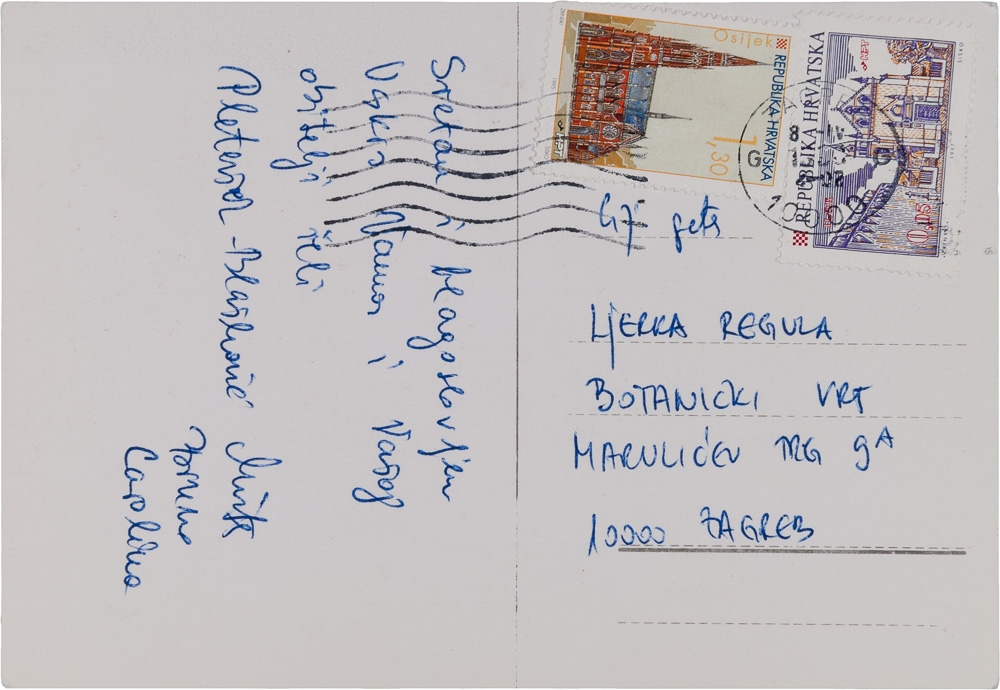 Sretan i blagoslovljen
Uskrs Vama i Vašoj
obitelji želi
Pletenac-Blašković
Carolina
Osijek
REPUBLIKA HRVATSKA
1,30
REPUBLIKA HRVATSKA
0,05
LJERKA REGULA
BOTANIČKI VRT
MARULIĆEV TRG 9A
10000 ZAGREB